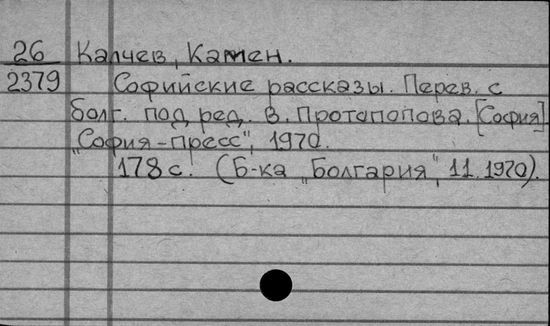 26 Калчев, Камен.
2379 Софийские рассказы. Перев. с
болг. под ред. В. Протопопова. [София]
"София-пресс", 1970.
178 с. (Б-ка "Болгария", 11. 1970).